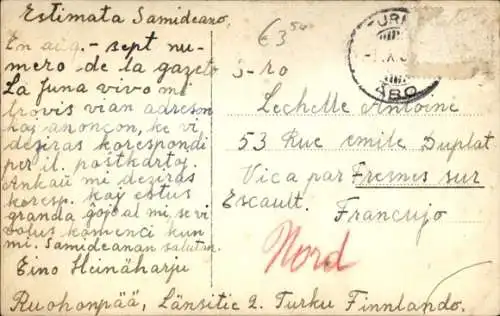 Estimata Samideano.
En aŭg. - sept nu-
mero de la gazeto
La Juna vivo mi
trovis vian adreson
kaj anoncon, ke vi
deziras korespondi
per il. poŝtkartoj.
Ankaŭ mi deziras
koresp. kaj estus
granda ĝojo al mi, se vi
volus komenci kun
mi. Samideanan saluton
Eino Heinäharju
Ruohonpää, Länsitie 2. Turku Finnlando.
€3,50
TURKU
ÅBO
S-ro
Lechelle Antoini
53 Rue emile Duplat
Vica par Fresnes sur
Escault.
Francujo
Nord